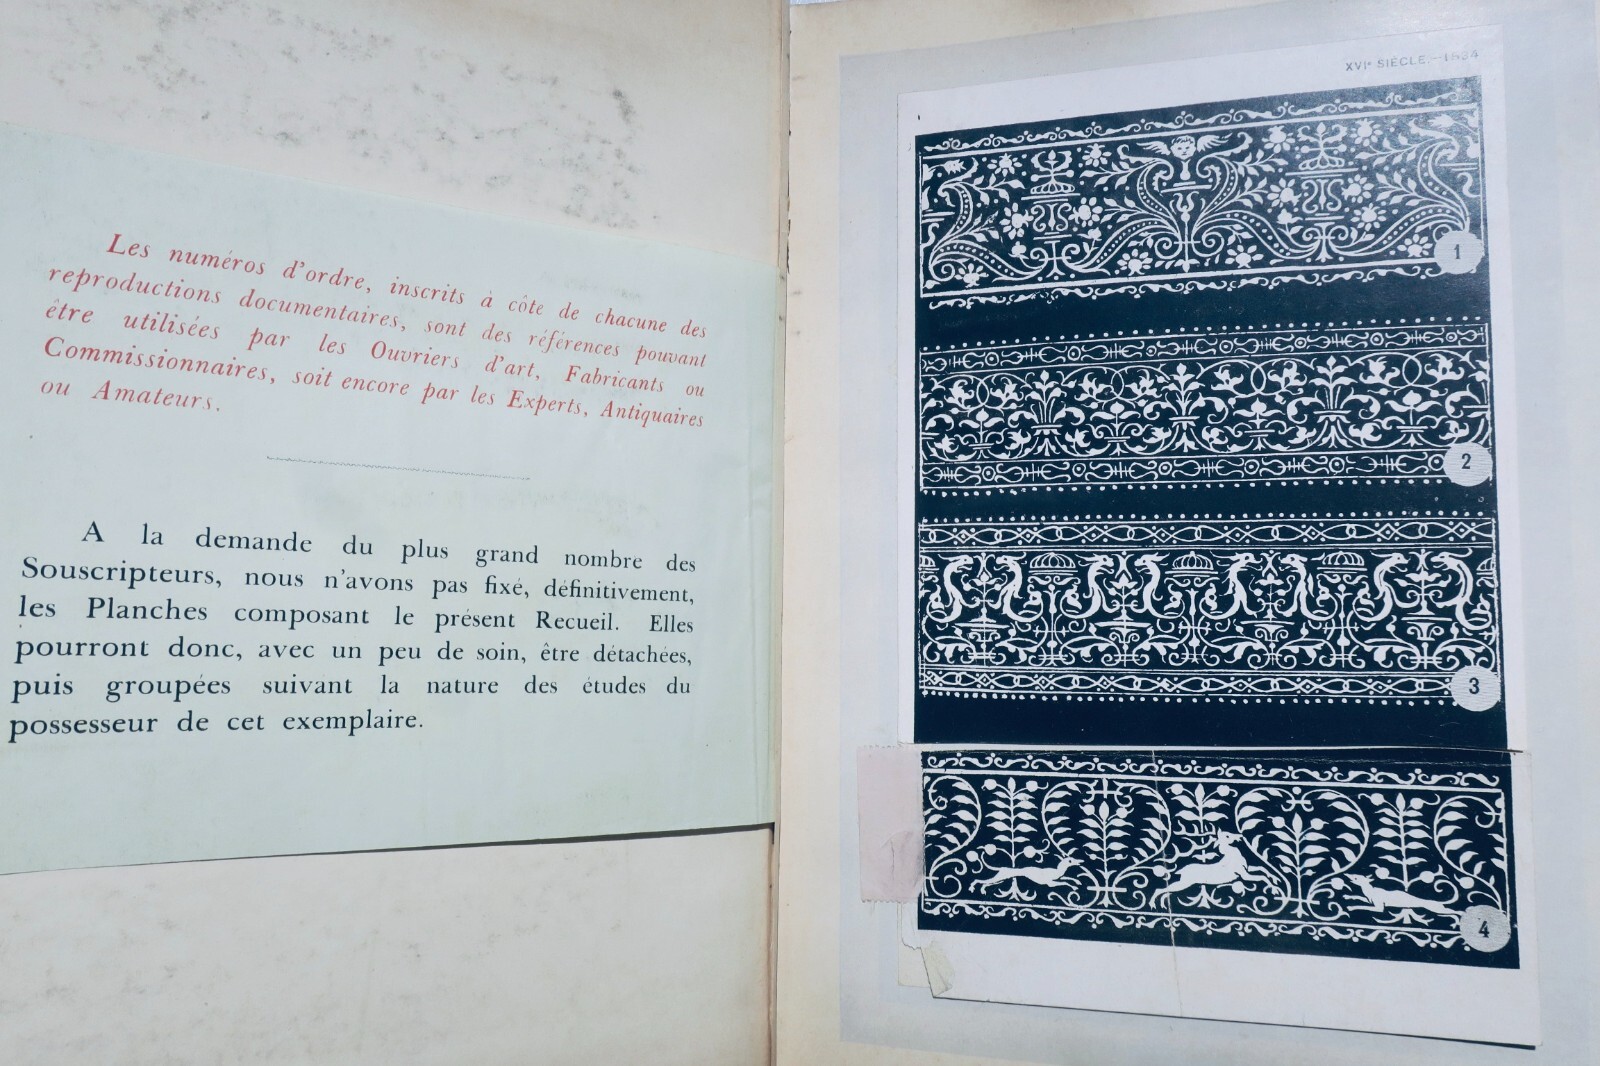 Les numéros d'ordre, inscrits à côte de chacune des
reproductions documentaires, sont des références pouvant
être utilisées par les Ouvriers d'art, Fabricants ou
Commissionnaires, soit encore par les Experts, Antiquaires
ou Amateurs.
A la demande du plus grand nombre des
Souscripteurs, nous n'avons pas fixé, définitivement,
les Planches composant le présent Recueil. Elles
pourront donc, avec un peu de soin, être détachées,
puis groupées suivant la nature des études du
possesseur de cet exemplaire.
XVIe SIÈCLE.—1534
1
2
3
4